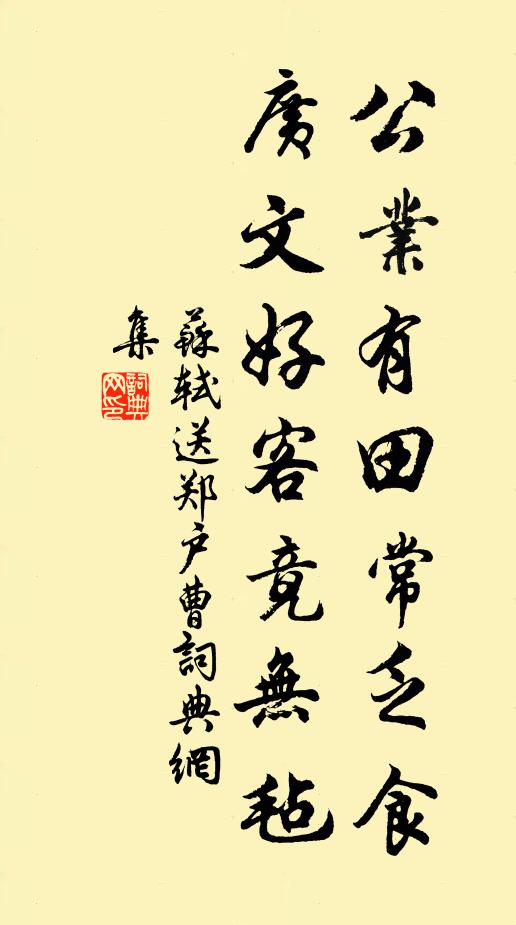 公業有田常乏食
廣文好客竟無毡
蘇軾送郑户曹詞典網
集
詞典
网印